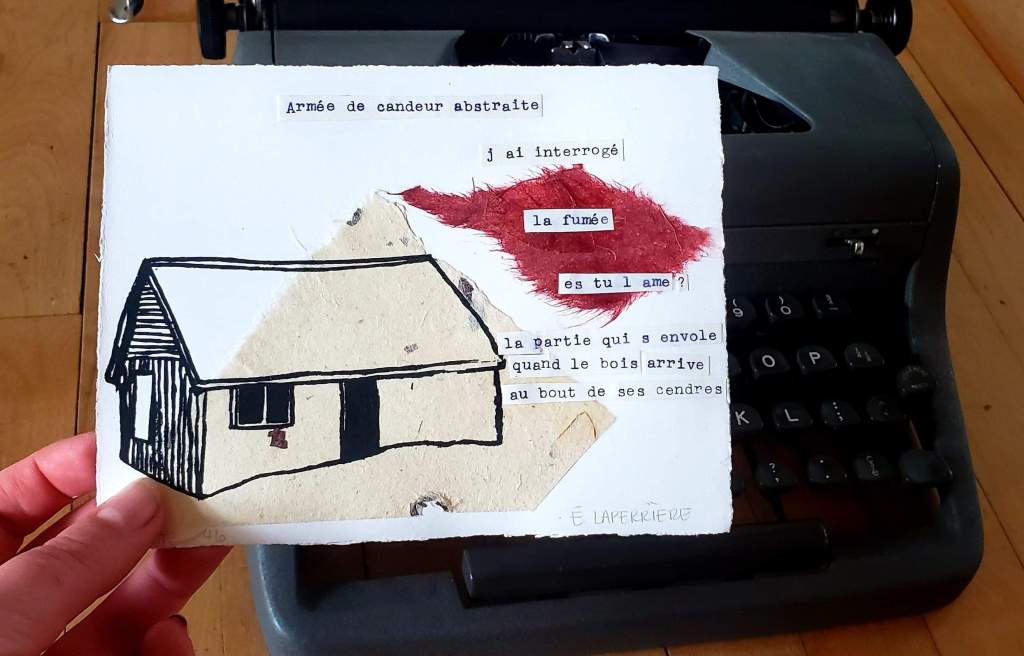 Armée de candeur abstraite
j ai interrogé
la fumée
es tu l ame ?
la partie qui s envole
quand le bois arrive
au bout de ses cendres
É LAPERRIÈRE
9 0
O P
K L
?